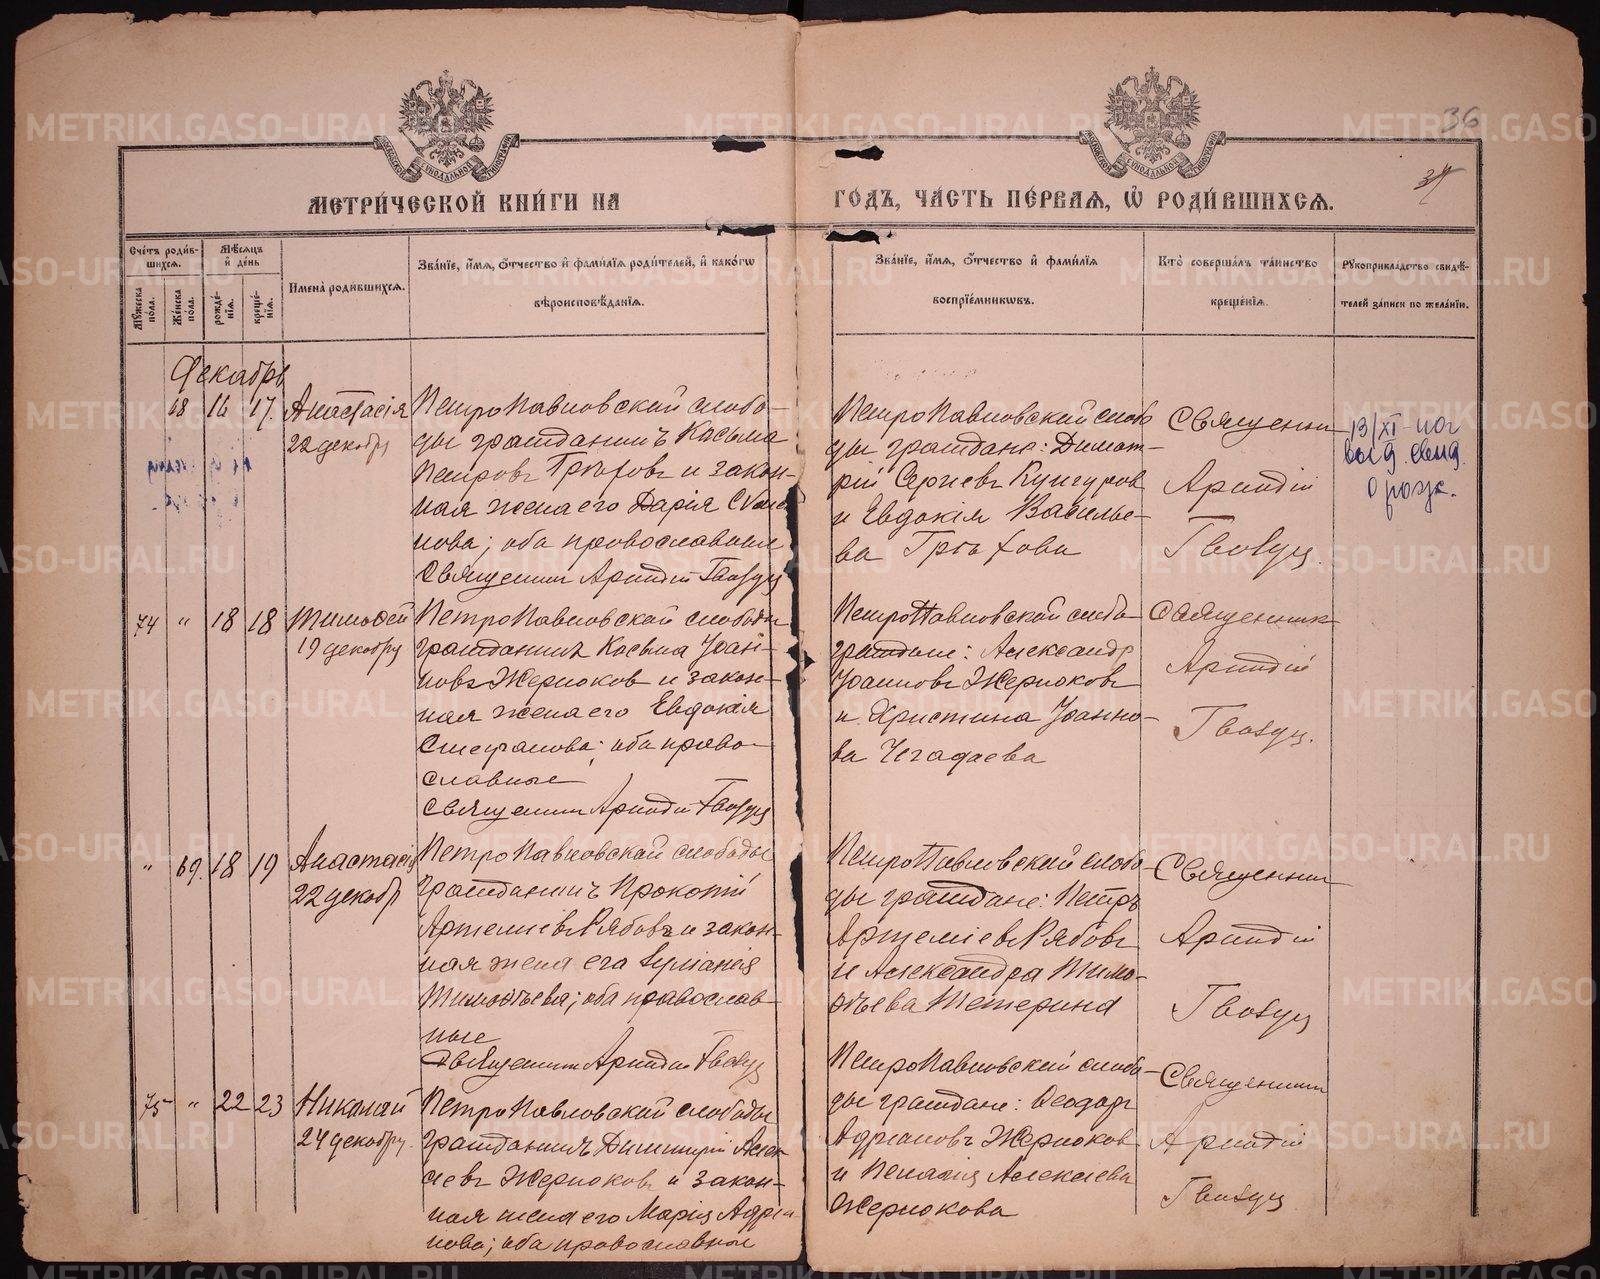 36
34
МЕТРИ́ЧЕСКОЙ КНИ́ГИ НА ГОДЪ, ЧА́СТЬ ПЕ́РВАѦ, Ѡ҆ РОДИ́ВШИХСѦ.
Сче́тъ роди́в-
шихсѧ.
Мѣ́сѧцъ
и҆ де́нь
Му́жеска пола.
Же́нска по́ла.
рожде́-
нїѧ.
креще́-
нїѧ.
И҆мена̀ роди́вшихсѧ.
Зва́нїе, и҆́мѧ, ѻ҆́тчество и҆ фами́лїѧ роди́телей, и҆ како́гѡ
вѣроисповѣ́данїѧ.
Зва́нїе, и҆́мѧ, ѻ҆́тчество и҆ фами́лїѧ
воспрїе́мникѡвъ.
Кто̀ соверша́лъ та́инство
креще́нїѧ.
Рꙋкоприкла́дство свидѣ́-
телей за́писи по жела́нїю.
Декабрь
68 16 17. Анастасія
22 декабр
ПетроПавловской слобо-
ды гражданинъ Касьма
Петровъ Грѣховъ и закон-
ная жена его Дарія
нова; оба православные
Священник Аркадій Гвоздец
ПетроПавловской слобо
ды граждане: Димит-
рій Сергіевъ Кунгуров
и Евдокія Василье-
ва Грѣхова
Священник
Аркадій
Гвоздец.
13/XI-
выд. свид.
о рожд.
74 " 18 18 Тимофей
19 декабр
ПетроПавловской слободы
гражданинъ Косьма Іоан-
новъ Жернаков и закон-
ная жена его Евдокія
Стефанова; оба право-
славные
Священник Аркадій Гвоздец
ПетроПавловской слобо-
граждане: Александръ
Іоанновъ Жернаковъ
и Христина Іоанно-
ва Чегадаева
Священник
Аркадій
Гвоздец.
" 69. 18 19 Анастасія
22 декабр
ПетроПавловской слободы
гражданинъ Прокопій
Артеміевъ Рябовъ и закон-
ная жена его
Тимофѣева; оба православ-
ные
Священник Аркадій Гвоздец
ПетроПавловской слобо-
ды граждане: Петръ
Артеміевъ Рябовъ
и Александра Тимо-
фѣева Тетерина
Священник
Аркадій
Гвоздец
75 " 22 23 Николай
24 декабр.
ПетроПавловской слободы
гражданинъ Димитрій Алек-
сѣевъ Жернаковъ и закон-
ная жена его Марія Адріа
нова; оба православные
ПетроПавловской слобо-
ды граждане: Ѳеодоръ
Адріановъ Жернаков
и Пелагія Алексѣева
Жернакова
Священник
Аркадій
Гвоздец
METRIKI.GASO-URAL.RU